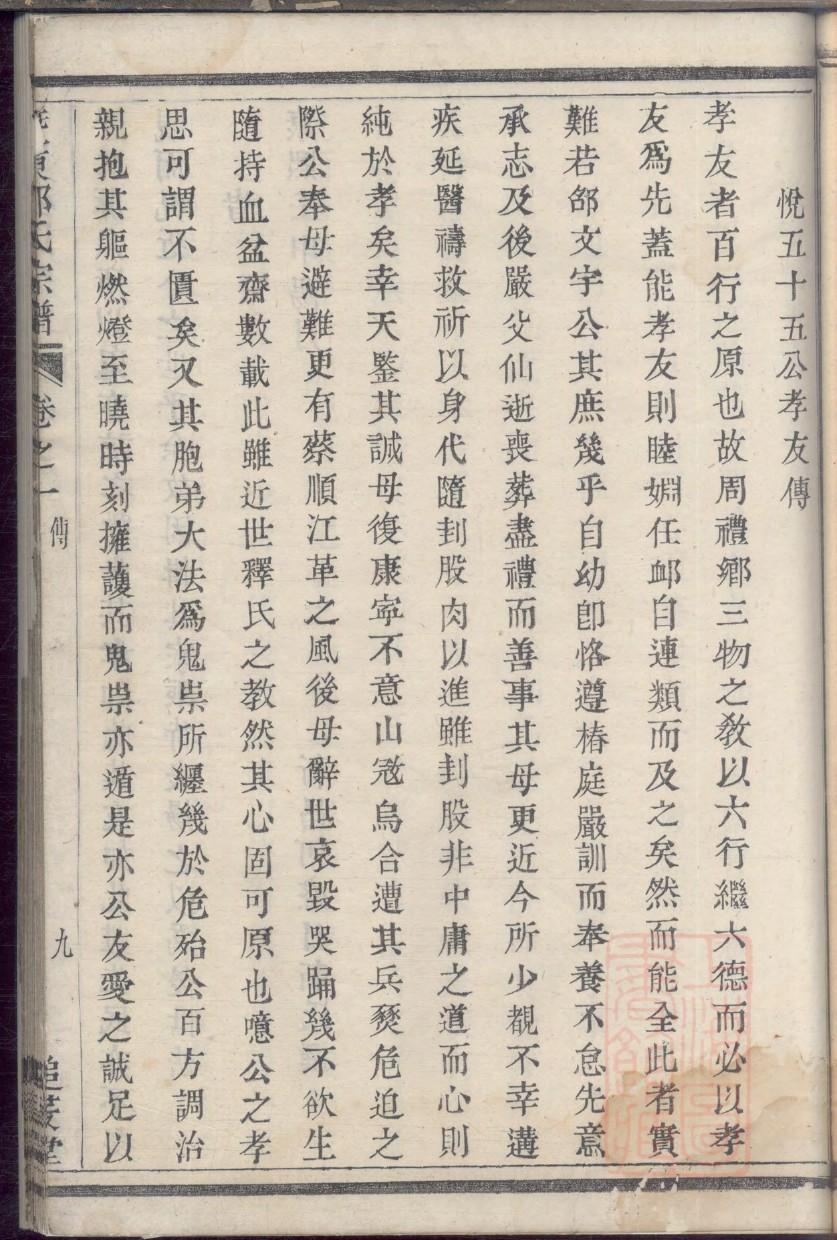 悅五十五公孝友傳
孝友者百行之原也故周禮鄉三物之敎以六行繼六德而必以孝
友爲先蓋能孝友則睦婣任卹自連類而及之矣然而能全此者實
難若郃文宇公其庶幾乎自幼卽恪遵椿庭嚴訓而奉養不怠先意
承志及後嚴父仙逝喪葬盡禮而善事其母更近今所少覩不幸遘
疾延醫禱救祈以身代隨刲股肉以進雖刲股非中庸之道而心則
純於孝矣幸天鑒其誠母復康寧不意山宼烏合遭其兵燹危迫之
際公奉母避難更有蔡順江革之風後母辭世哀毀哭踊幾不欲生
隨持血盆齋數載此雖近世釋氏之教然其心固可原也噫公之孝
思可謂不匱矣又其胞弟大法爲鬼祟所纏幾於危殆公百方調治
親抱其軀燃燈至曉時刻擁護而鬼祟亦遁是亦公友愛之誠足以
氏宗譜 卷之一 傳 九 追 堂